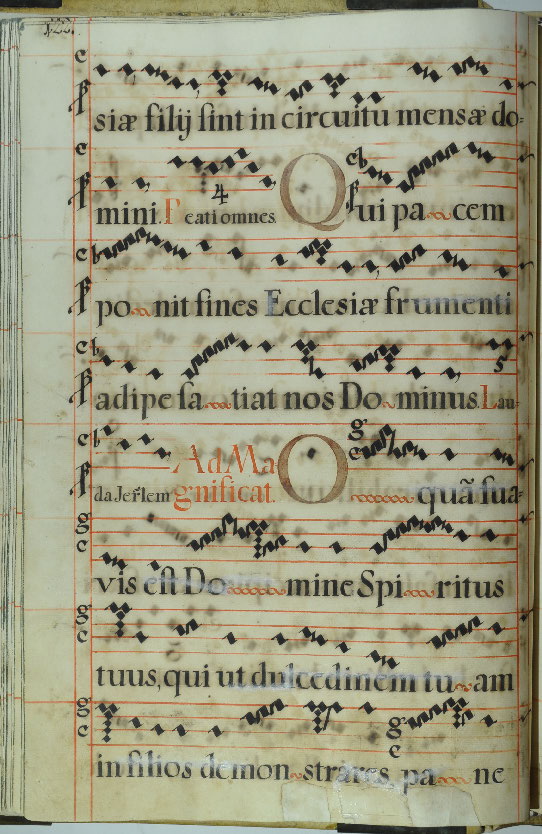 siæ filij sint in circuitu mensæ do=
mini. Beati omnes 4 Qui pa cem
po nit fines Ecclesiæ frumenti
adipe sa tiat nos Do minus. Lau=
5
da Jer̃lem Ad Ma
gnificat. O quã sua=
vis est Do mine Spi ritus
tuus, qui ut dulcedinem tu am
in filios demon strares, pa ne